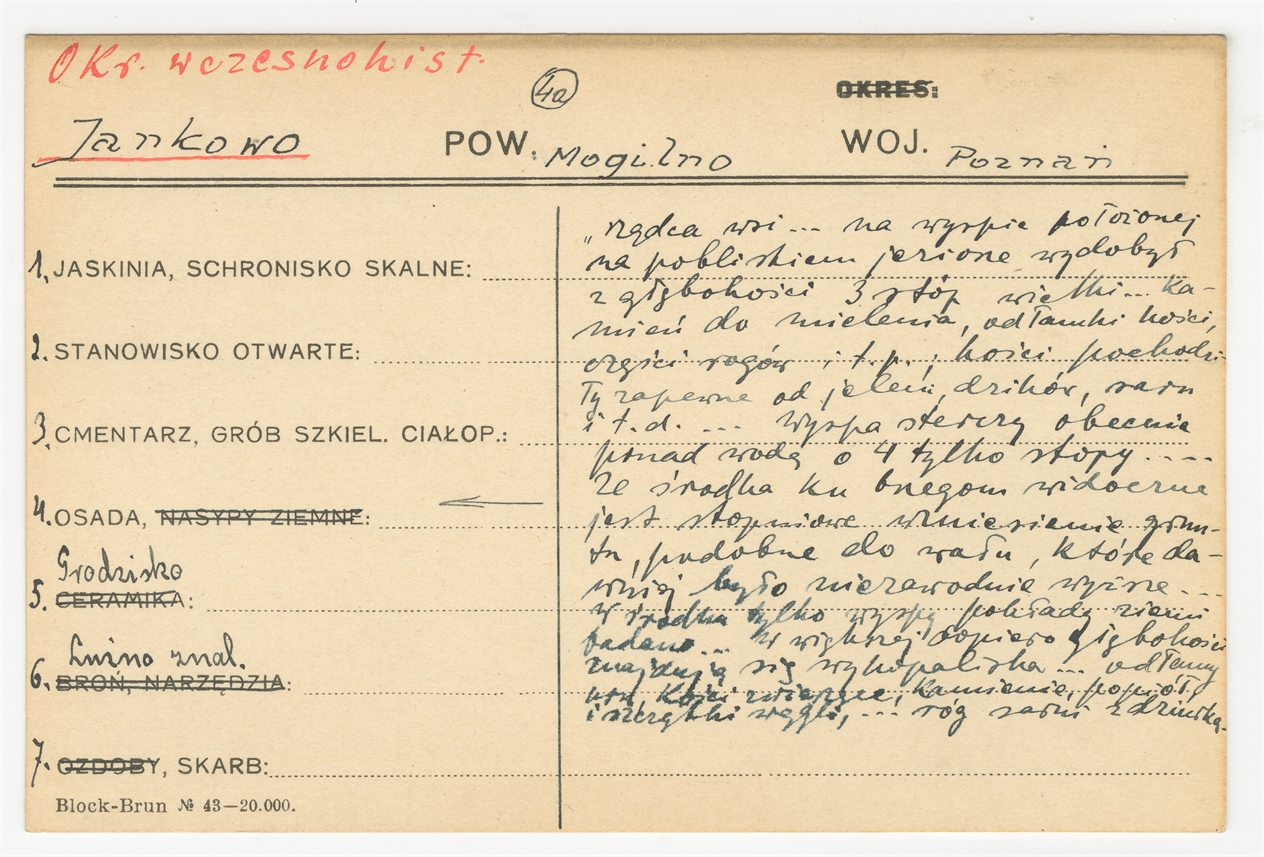 Okr. wczesnohist.
4a
OKRES:
Jankowo POW. Mogilno WOJ. Poznań
1. JASKINIA, SCHRONISKO SKALNE:
2. STANOWISKO OTWARTE:
3. CMENTARZ, GRÓB SZKIEL. CIAŁOP.:
4. OSADA, NASYPY ZIEMNE:
Grodzisko
5. CERAMIKA:
Luźno znal.
6. BROŃ, NARZĘDZIA:
7. OZDOBY, SKARB:
Block-Brun № 43—20.000.
„rządca wsi ... na wyspie położonej
na pobliskiem jeziorze wydobył
z głębokości 3 stóp wielki ... ka-
mień do mielenia, odłamki kości,
części rogów i t.p.; kości pochodzi-
ły zapewne od jeleni, dzików, sarn
i t.d. ... Wyspa sterczy obecnie
ponad wodę o 4 tylko stopy .....
Ze środka ku brzegom widoczne
jest stopniowe wzniesienie grun-
tu, podobne do wału, które da-
wniej było niezawodnie wyższe ...
W środku tylko wyspy pokłady ziemi
badano ... W większej dopiero głębokości
znajdują się wykopaliska ... odłamy
urn, kości zwierzęce, kamienie, popiół
i szczątki węgli, ... róg sarni z dziurką.